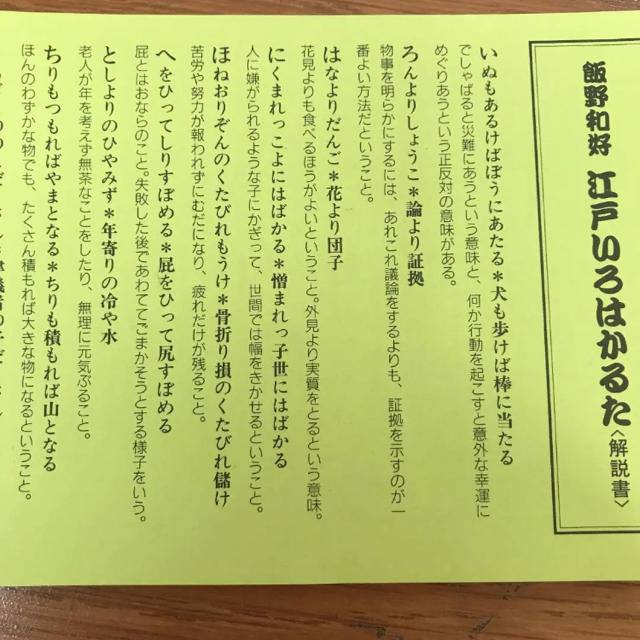 飯野和好 江戸いろはかるた〈解説書〉
いぬもあるけばぼうにあたる＊犬も歩けば棒に当たる
でしゃばると災難にあうという意味と、何か行動を起こすと意外な幸運に
めぐりあうという正反対の意味がある。
ろんよりしょうこ＊論より証拠
物事を明らかにするには、あれこれ議論をするよりも、証拠を示すのが一
番よい方法だということ。
はなよりだんご＊花より団子
花見よりも食べるほうがよいということ。外見より実質をとるという意味。
にくまれっこよにはばかる＊憎まれっ子世にはばかる
人に嫌がられるような子にかぎって、世間では幅をきかせるということ。
ほねおりぞんのくたびれもうけ＊骨折り損のくたびれ儲け
苦労や努力が報われずにむだになり、疲れだけが残ること。
へをひってしりすぼめる＊屁をひって尻すぼめる
屁とはおならのこと。失敗した後であわててごまかそうとする様子をいう。
としよりのひやみず＊年寄りの冷や水
老人が年を考えず無茶なことをしたり、無理に元気ぶること。
ちりもつもればやまとなる＊ちりも積もれば山となる
ほんのわずかな物でも、たくさん積もれば大きな物になるということ。